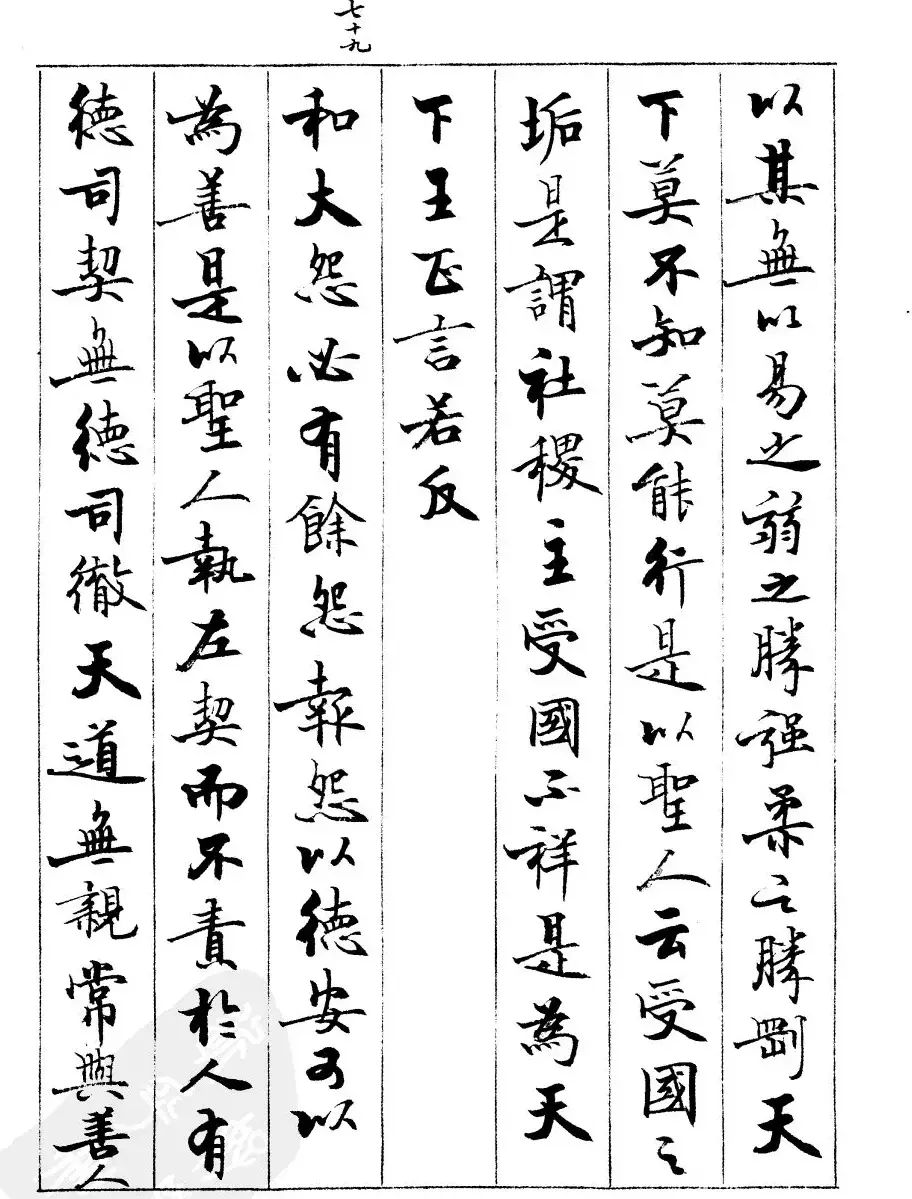 七十九
以其無以易之弱之勝强柔之勝剛天
下莫不知莫能行是以聖人云受國之
垢是謂社稷主受國不祥是為天
下王正言若反
和大怨必有餘怨報怨以德安可以
為善是以聖人執左契而不責於人有
德司契無德司徹天道無親常與善人